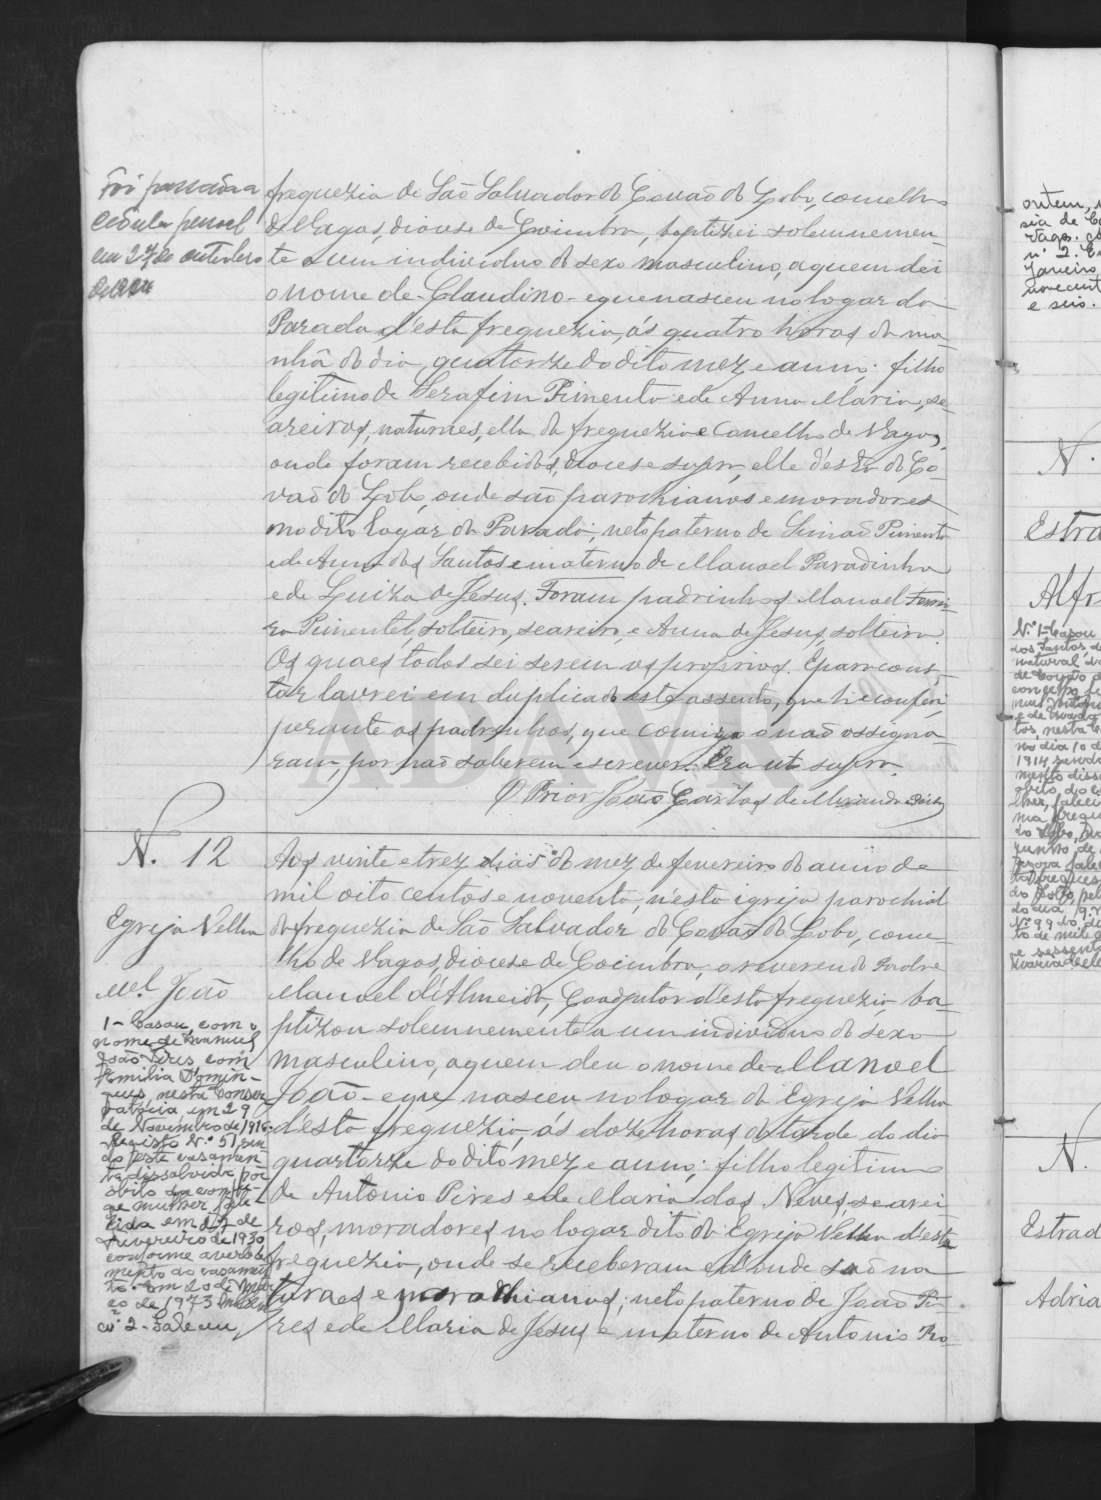 Foi passada a
cedula pessoal
em 27 de outubro
freguezia de São Salvador do Covão do Lobo, concelho
de Vagos, diocese de Coimbra, baptizei solemnemen-
te a um individuo do sexo masculino, a quem dei
o nome de - Claudino - e que nasceu no logar da
Parada d'esta freguezia, ás quatro horas da ma-
nhã do dia quatorze do dito mez e anno; filho
legitimo de Serafim Pimenta e de Anna Maria, se-
areiros, naturaes, ella da freguezia e Concelho de Vagos,
onde foram recebidos, diocese supra, elle d'esta do Co-
vão do Lobo, onde são parochianos e moradores
no dito logar da Parada; neto paterno de Simão Pimenta
e de Anna dos Santos e materno de Manoel Paradinha
e de Luiza de Jesus. Foram padrinhos Manoel Ferrei-
ra Pimentel, solteiro, seareiro, e Anna de Jesus, solteira.
Os quaes todos sei serem os proprios. E para cons-
tar lavrei em duplicado este assento, que li e conferi
perante os padrinhos, que comigo o não assigna-
ram, por não saberem escrever. Era ut supra.
O Prior João Carlos de Miranda
N. 12
Egreja Velha
Mel. João
1 - Casou, com o
nome de Manuel
João Pires com
Emilia Domin-
gues, nesta Conser
vatória, em 29
de Novembro de 1916.
Registo N.º 51, sen
do este casamen-
to dissolvido por
obito da conju-
ge mulher, fale-
cida em 27 de
Fevereiro de 1930
conforme averba-
mento ao casamen
to. Em 20 de Mar
ço de 1973
nº 2 - Faleceu
Aos vinte e trez dias do mez de fevereiro do anno de
mil oito centos e noventa, n'esta igreja parochial
da freguezia de São Salvador do Covão do Lobo, conce-
lho de Vagos, diocese de Coimbra, o reverendo Padre
Manoel d'Almeida, Coadjutor d'esta freguezia, ba-
ptizou solemnemente a um individuo do sexo
masculino, a quem deu o nome de - Manoel
João - e que nasceu no logar da Egreja Velha
d'esta freguezia, ás doze horas da tarde do dia
quartorze do dito mez e anno; filho legitimo
de Antonio Pires e de Maria das Neves, searei
ros, moradores no logar dito da Egreja Velha d'esta
freguezia, onde se receberam e d'onde são na
turaes e parochianos; neto paterno de João Pi-
res e de Maria de Jesus e materno de Antonio Ro-
ADAVR
ontem,
N.
Estra
Alfr
N.º 1 - Casou
dos Santos,
natural
no dia 10 d
1914
N.
Estrad
Adria